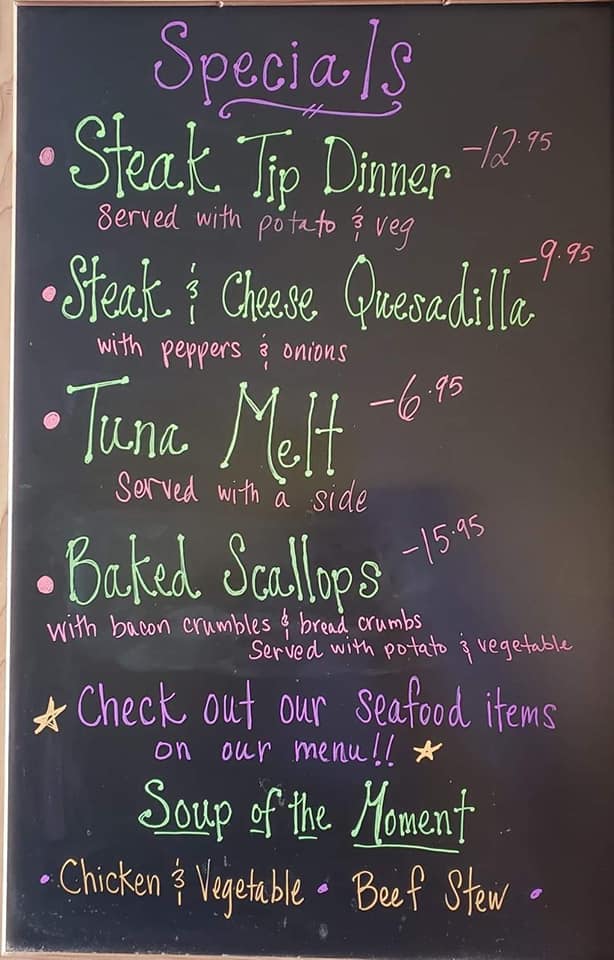 Specials
• Steak Tip Dinner -12.95
Served with potato & veg
• Steak & Cheese Quesadilla -9.95
with peppers & onions
• Tuna Melt -6.95
Served with a side
• Baked Scallops -15.95
with bacon crumbles & bread crumbs
Served with potato & vegetable
☆ Check out our seafood items
on our menu!! ☆
Soup of the Moment
• Chicken & Vegetable • Beef Stew •